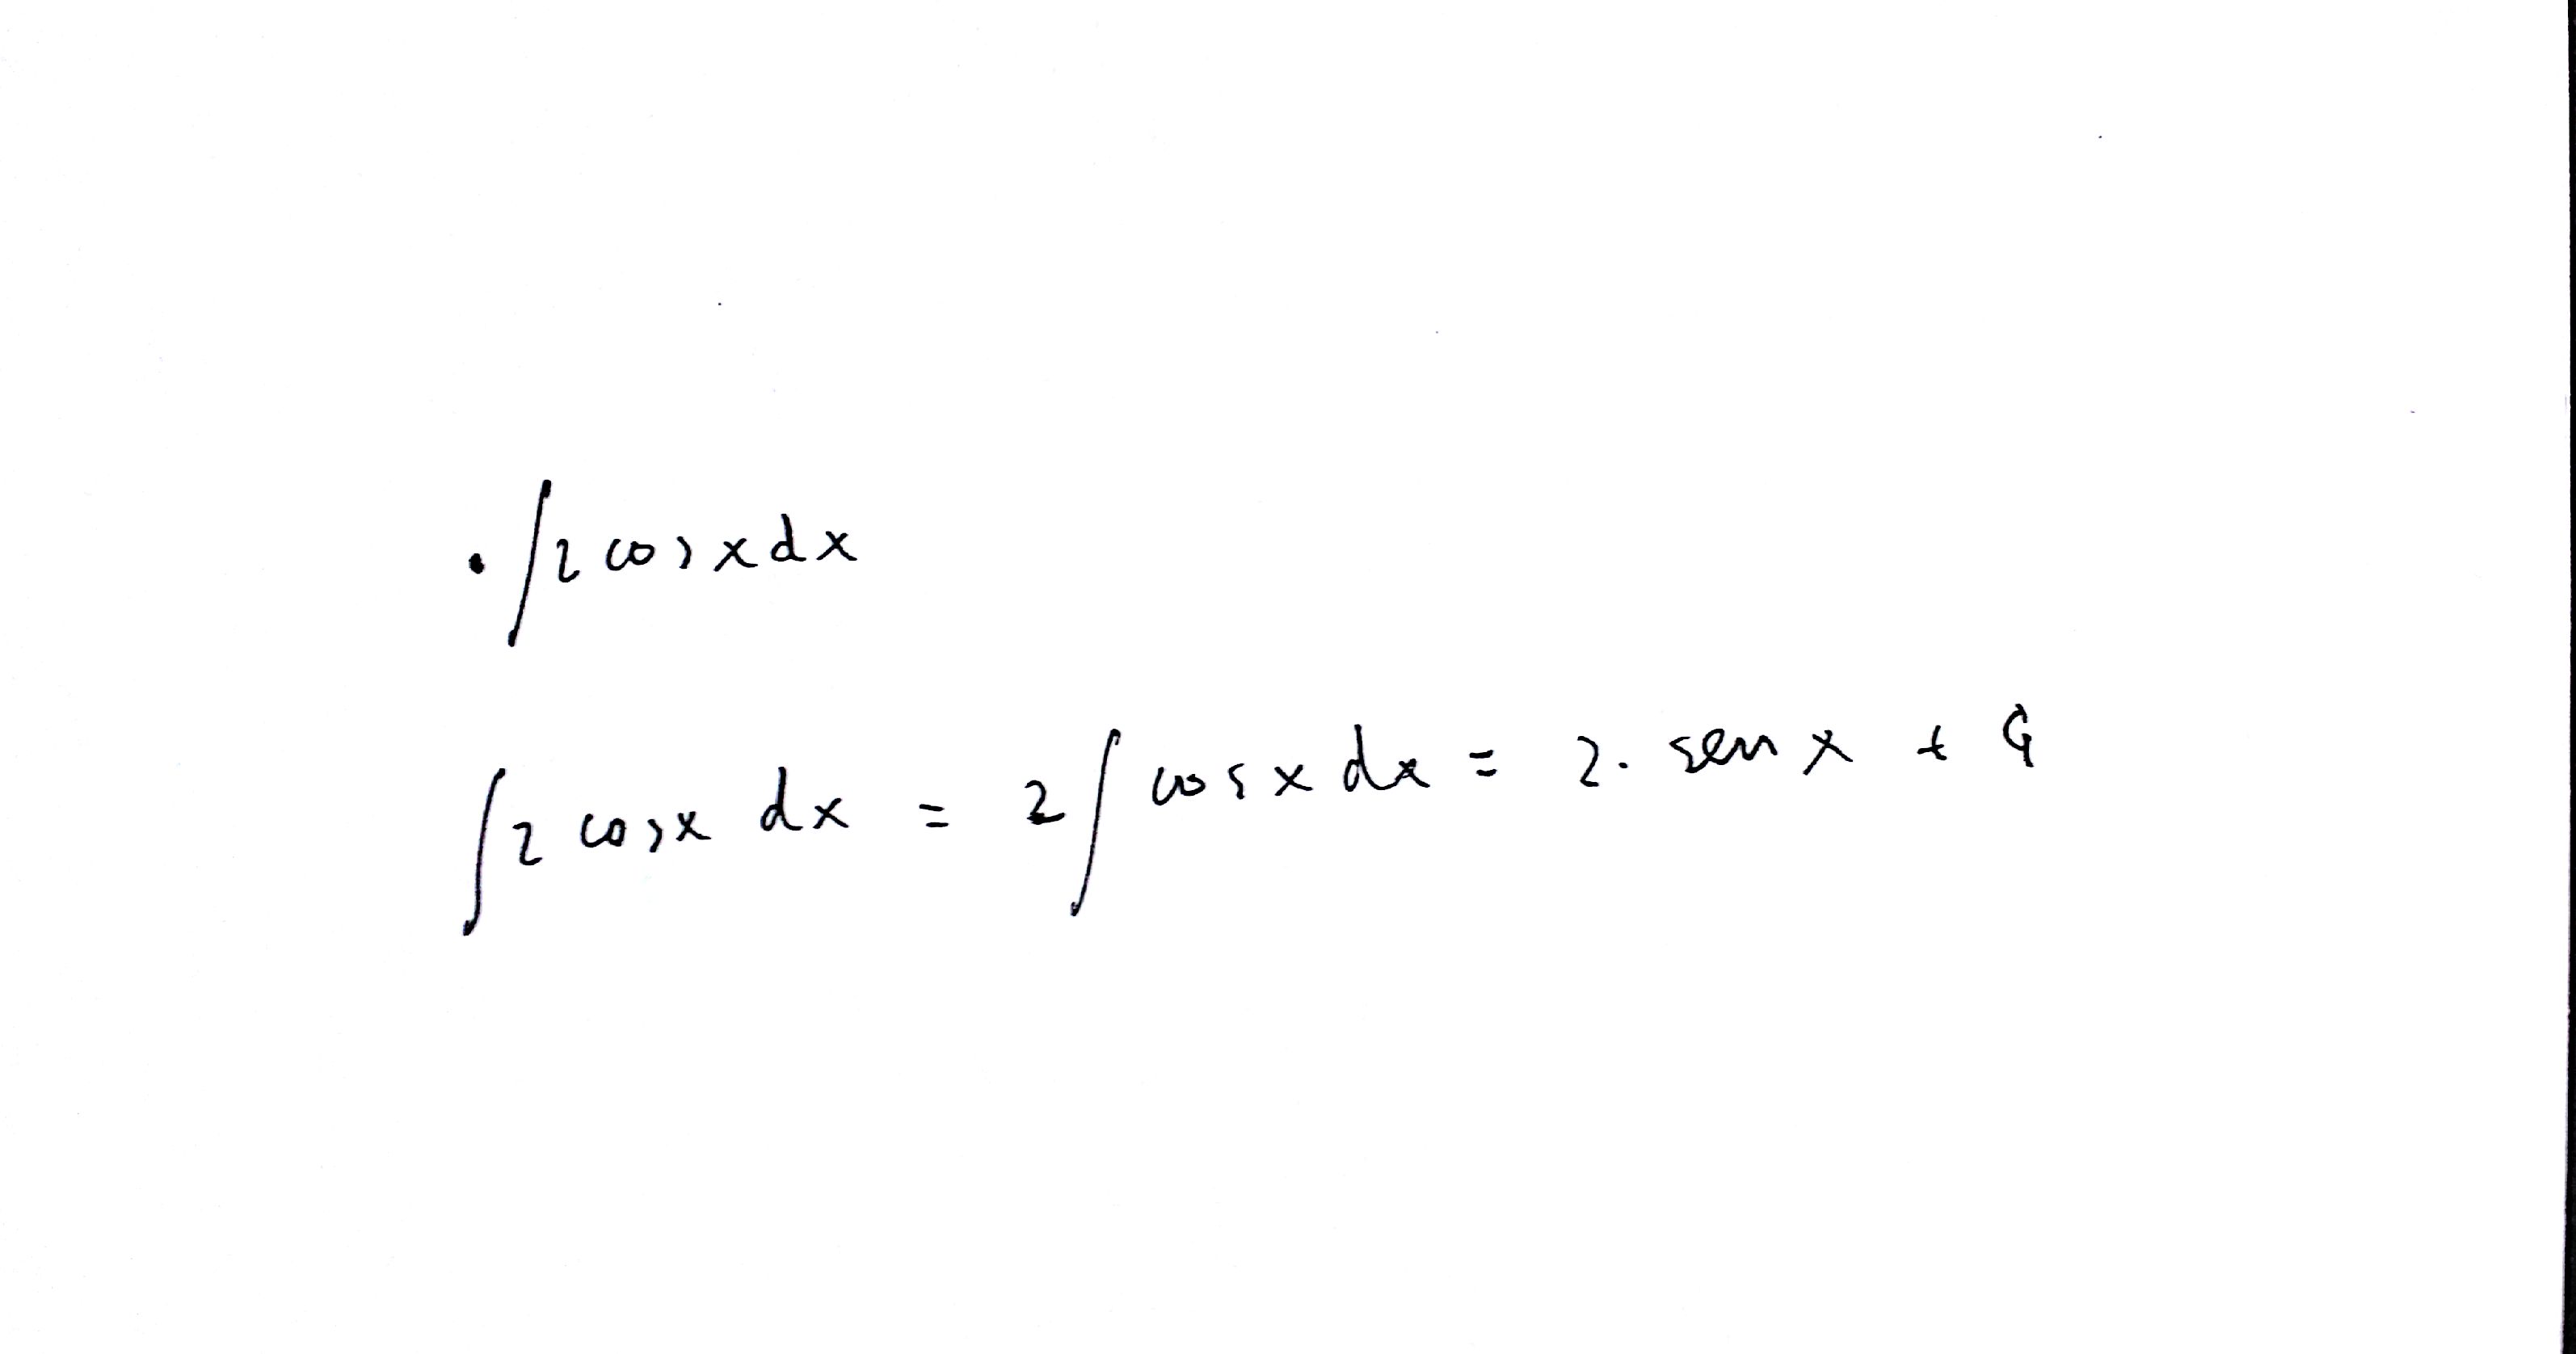 · ∫ 2 cos x dx
∫ 2 cos x dx = 2 ∫ cos x dx = 2 · sen x + C